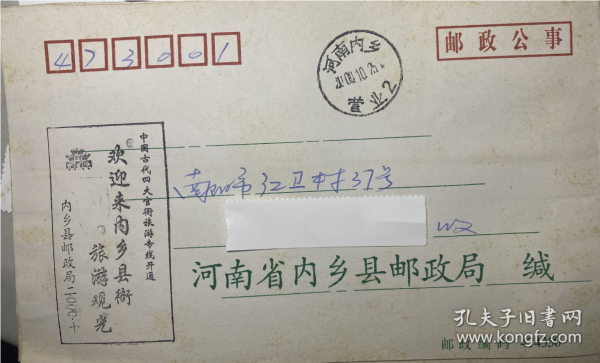 473001
邮政公事
河南内乡
中国古代四大官衙旅游专线开通
欢迎来内乡县衙
旅游观光
内乡县邮政局
红卫村37号
收
河南省内乡县邮政局 缄
邮政编码
孔夫子旧书网
www.kongfz.com